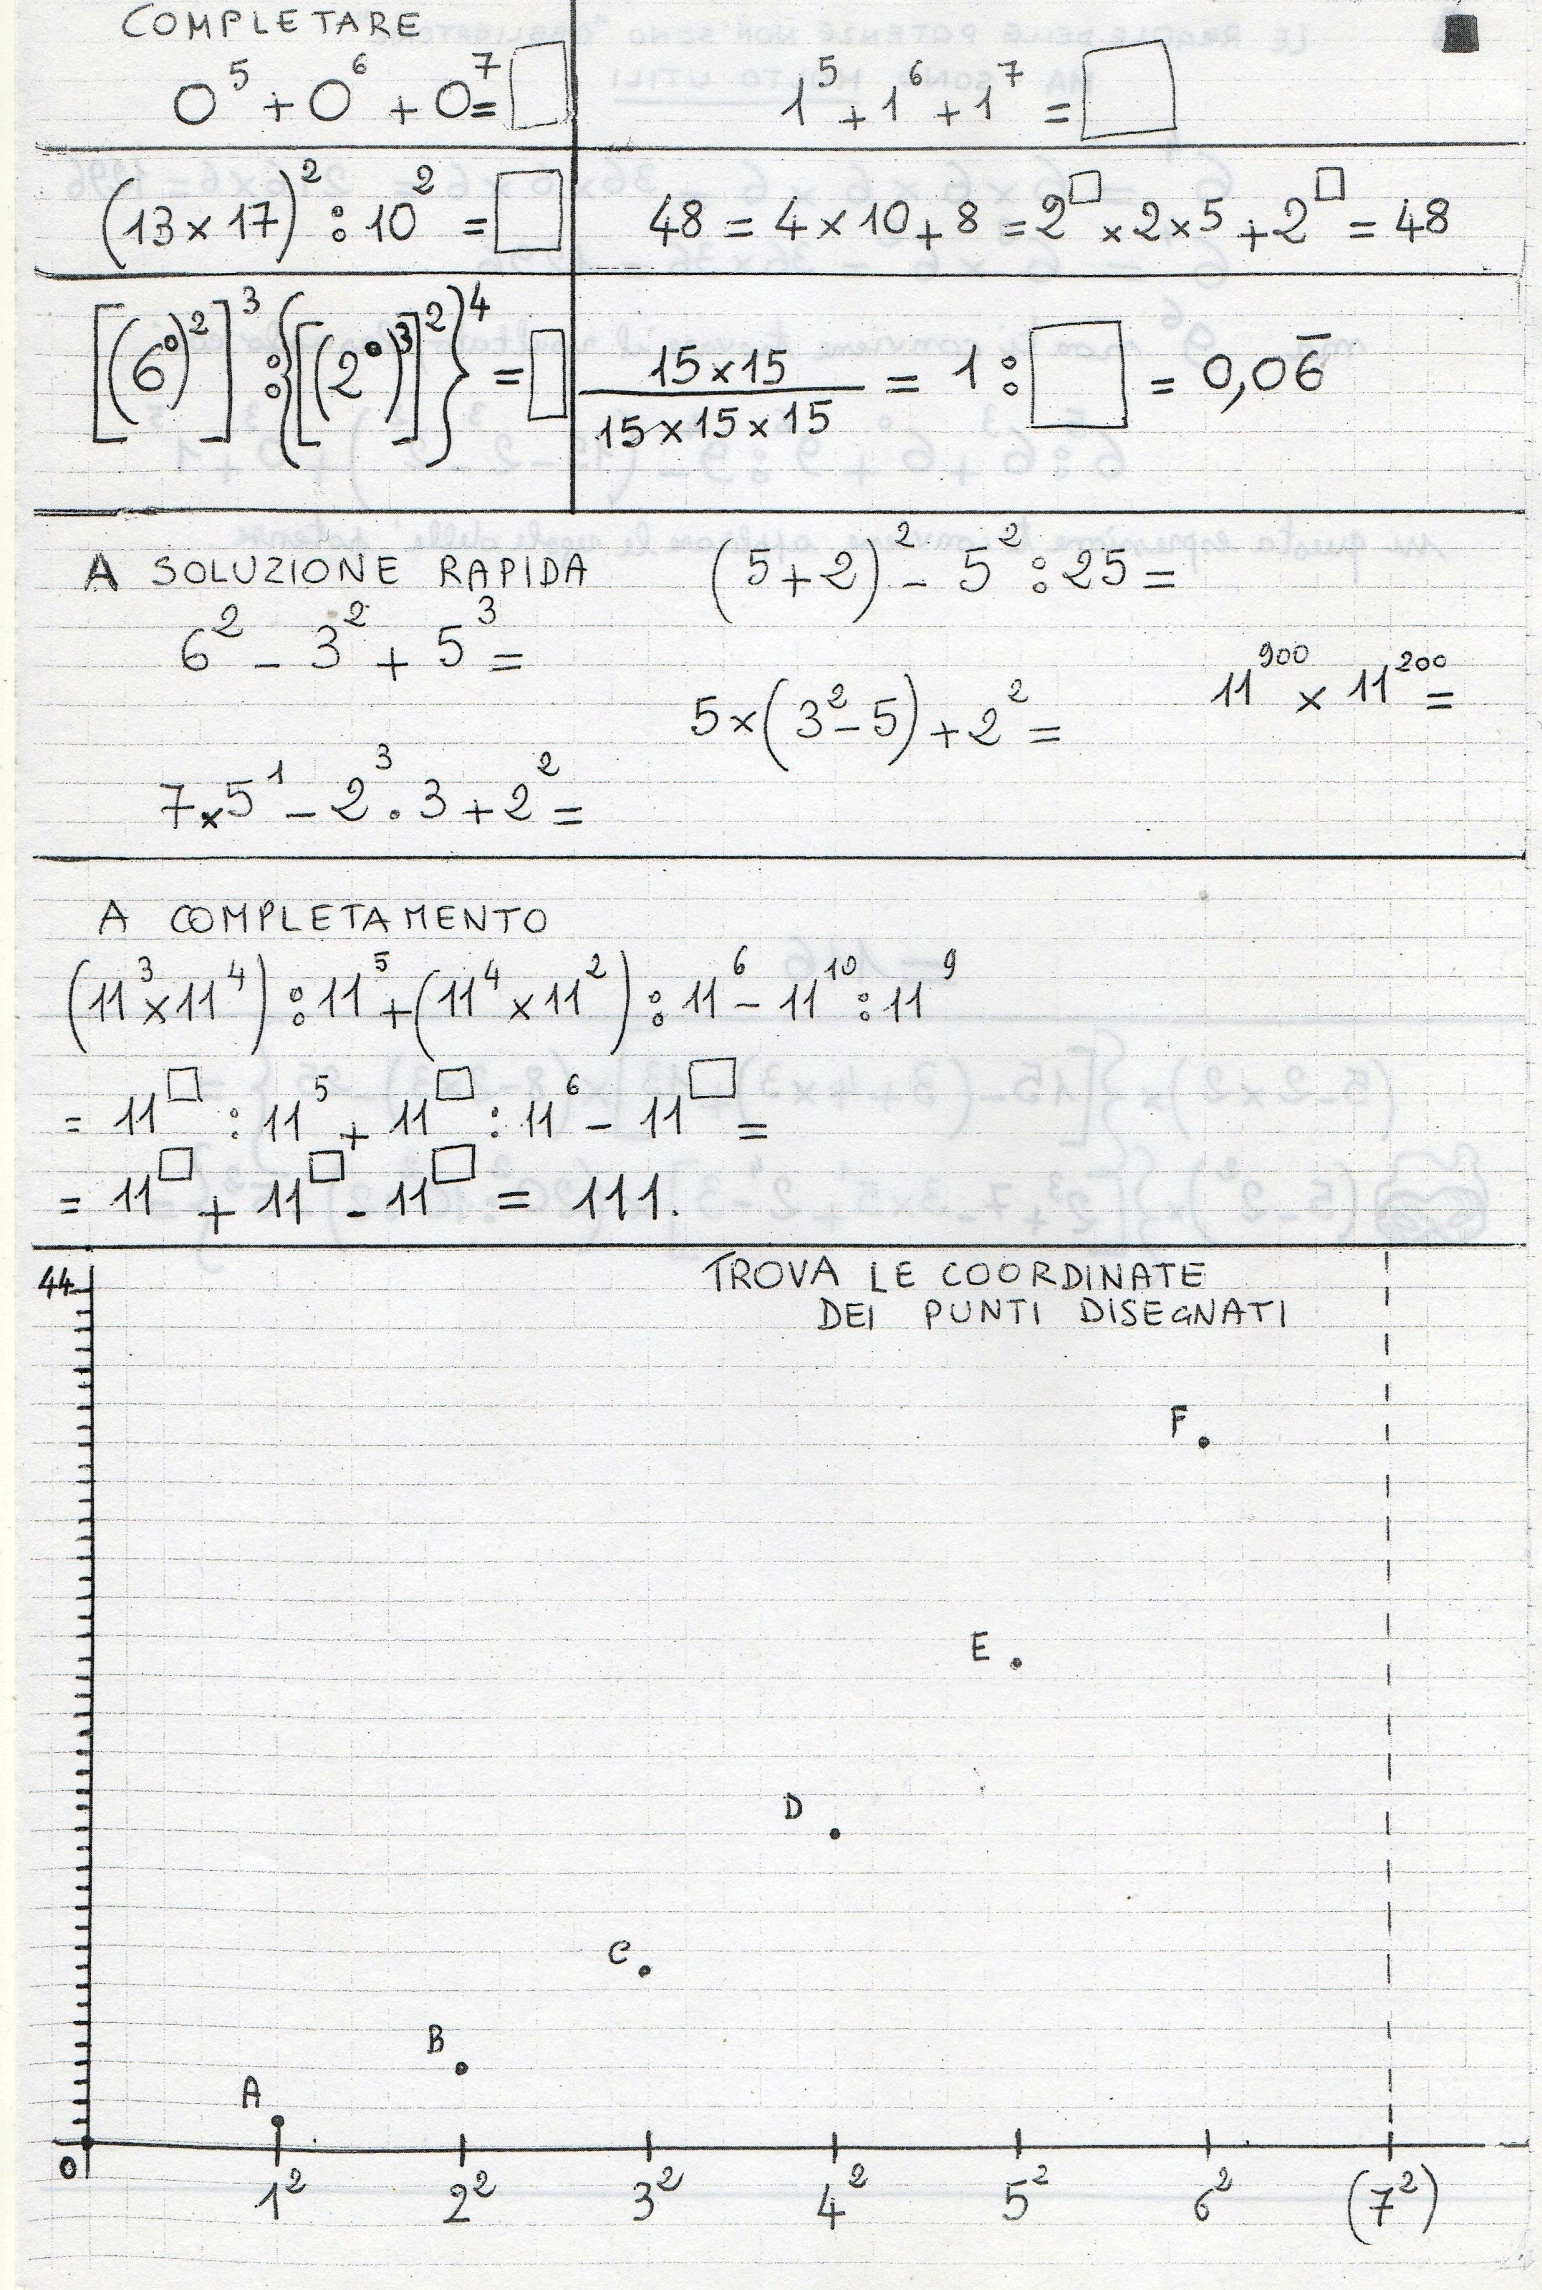 COMPLETARE
0⁵ + 0⁶ + 0⁷ = □
1⁵ + 1⁶ + 1⁷ = □
(13 × 17)² : 10² = □
48 = 4 × 10 + 8 = 2^□ × 2 × 5 + 2^□ = 48
[(6⁰)²]³ : {[(2⁰)³]²}⁴ = □
15 × 15 / 15 × 15 × 15 = 1 : □ = 0,06̅
A SOLUZIONE RAPIDA
(5 + 2)² - 5² : 25 =
6² - 3² + 5³ =
11⁹⁰⁰ × 11²⁰⁰ =
5 × (3² - 5) + 2² =
7 × 5¹ - 2³ · 3 + 2² =
A COMPLETAMENTO
(11³ × 11⁴) : 11⁵ + (11⁴ × 11²) : 11⁶ - 11¹⁰ : 11⁹
= 11^□ : 11⁵ + 11^□ : 11⁶ - 11^□ =
= 11^□ + 11^□ - 11^□ = 111.
44
TROVA LE COORDINATE
DEI PUNTI DISEGNATI
F
E
D
C
B
A
0
1² 2² 3² 4² 5² 6² (7²)